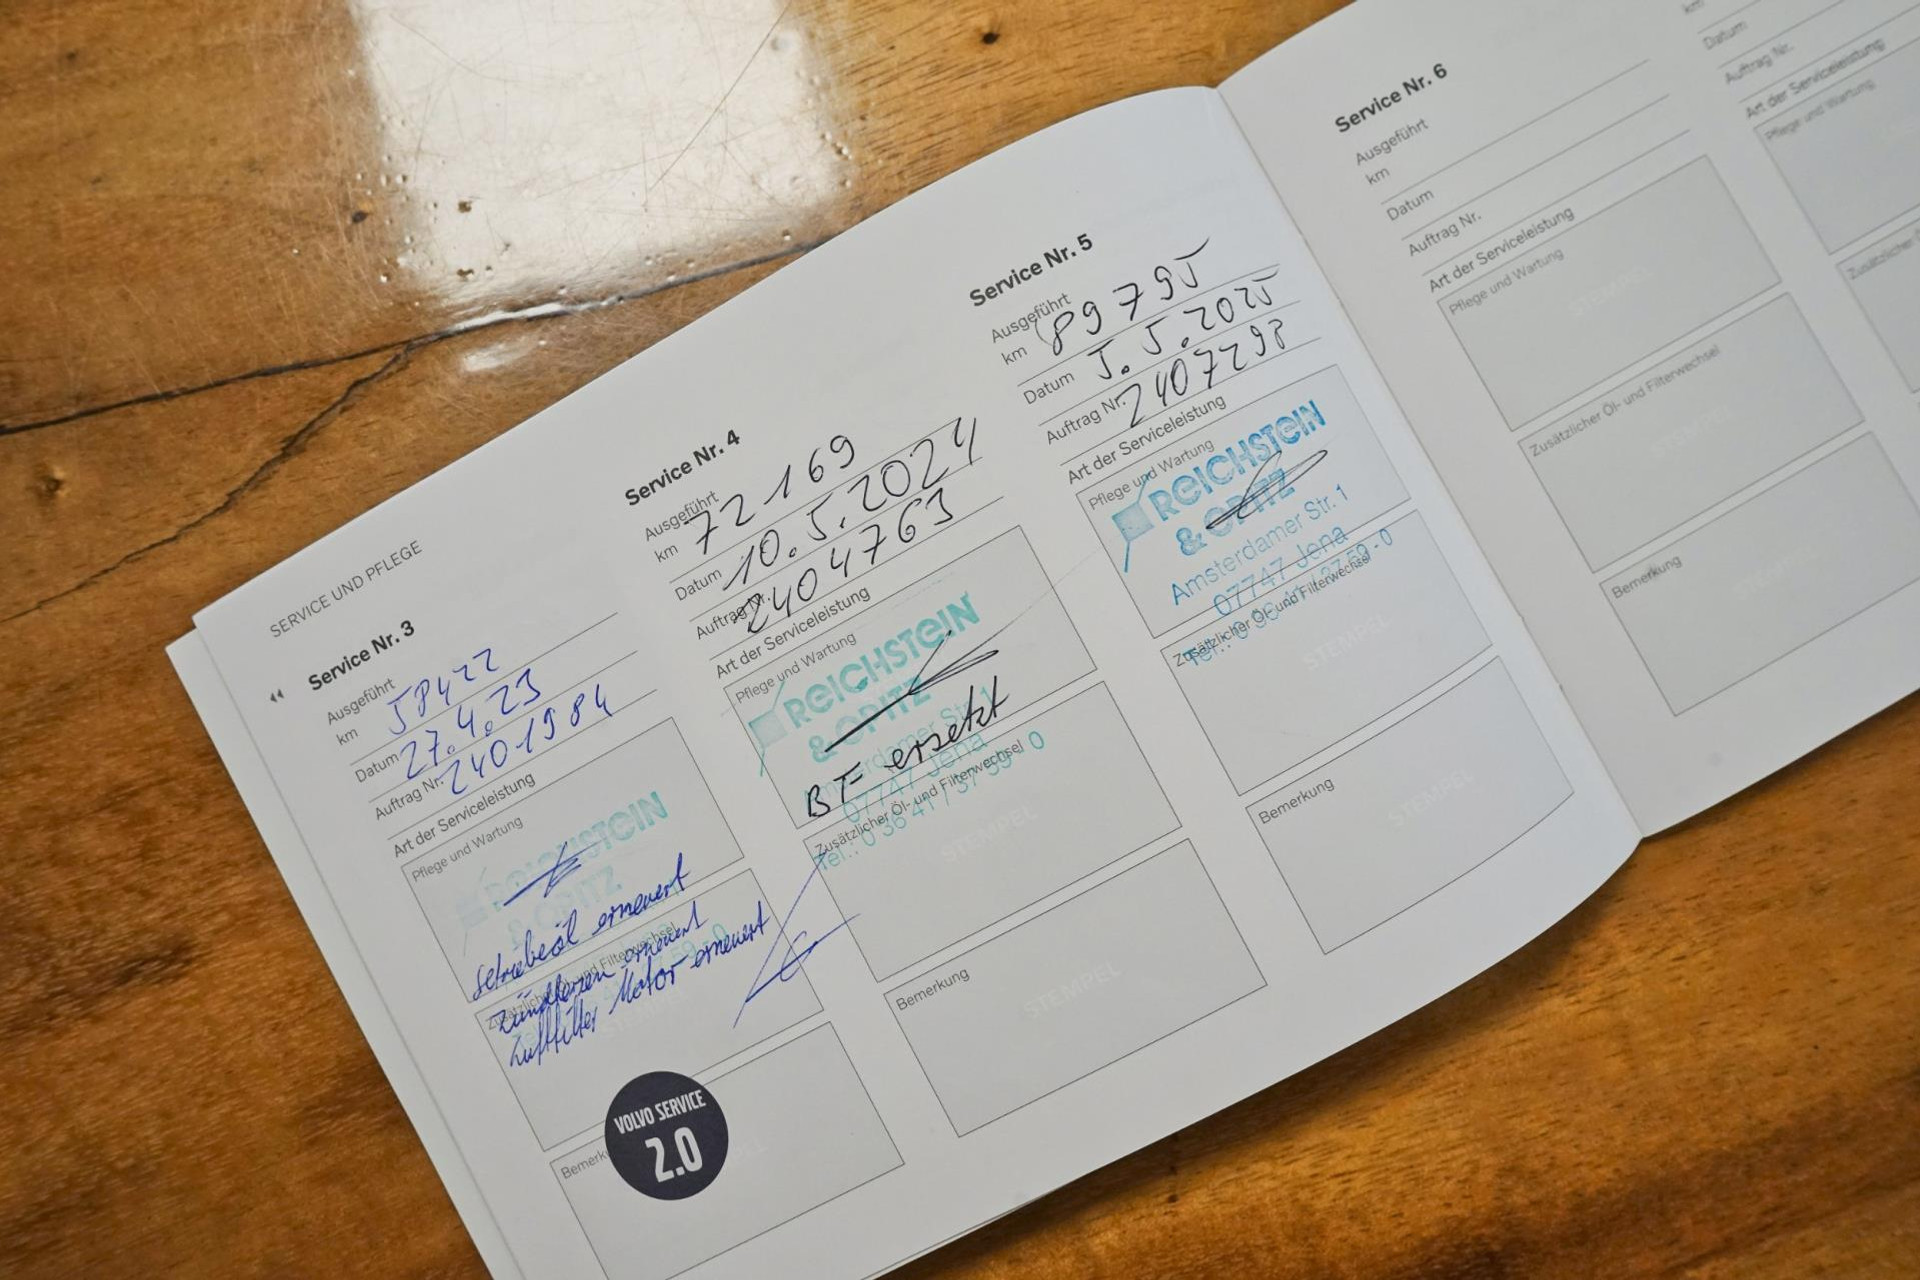 SERVICE UND PFLEGE
Service Nr. 3
Ausgeführt
km 58422
Datum 27.4.23
Auftrag Nr. 2401984
Art der Serviceleistung
Pflege und Wartung
REICHSTEIN
& OPITZ
Getriebeöl erneuert
Zündkerzen erneuert
Luftfilter Motor erneuert
Zusätzlicher Öl- und Filterwechsel
Bemerk
VOLVO SERVICE
2.0
Service Nr. 4
Ausgeführt
km 72169
Datum 10.5.2024
Auftrag Nr. 2404763
Art der Serviceleistung
Pflege und Wartung
REICHSTEIN
& OPITZ
Amsterdamer Str. 1
07747 Jena
Tel.: 0 36 41 / 37 59 - 0
BF ersetzt
Zusätzlicher Öl- und Filterwechsel
STEMPEL
Bemerkung
STEMPEL
Service Nr. 5
Ausgeführt
km 89795
Datum 5.5.2025
Auftrag Nr. 2407298
Art der Serviceleistung
Pflege und Wartung
REICHSTEIN
& OPITZ
Amsterdamer Str. 1
07747 Jena
Tel.: 0 36 41 / 37 59 - 0
Zusätzlicher Öl- und Filterwechsel
STEMPEL
Bemerkung
STEMPEL
Service Nr. 6
Ausgeführt
km
Datum
Auftrag Nr.
Art der Serviceleistung
Pflege und Wartung
STEMPEL
Zusätzlicher Öl- und Filterwechsel
Bemerkung
km
Datum
Auftrag Nr.
Art der Serviceleistung
Pflege und Wartung
Zusätzlicher